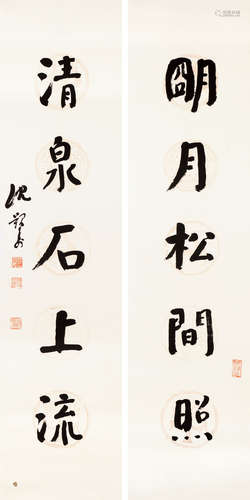 明月松間照
清泉石上流
沈觐安